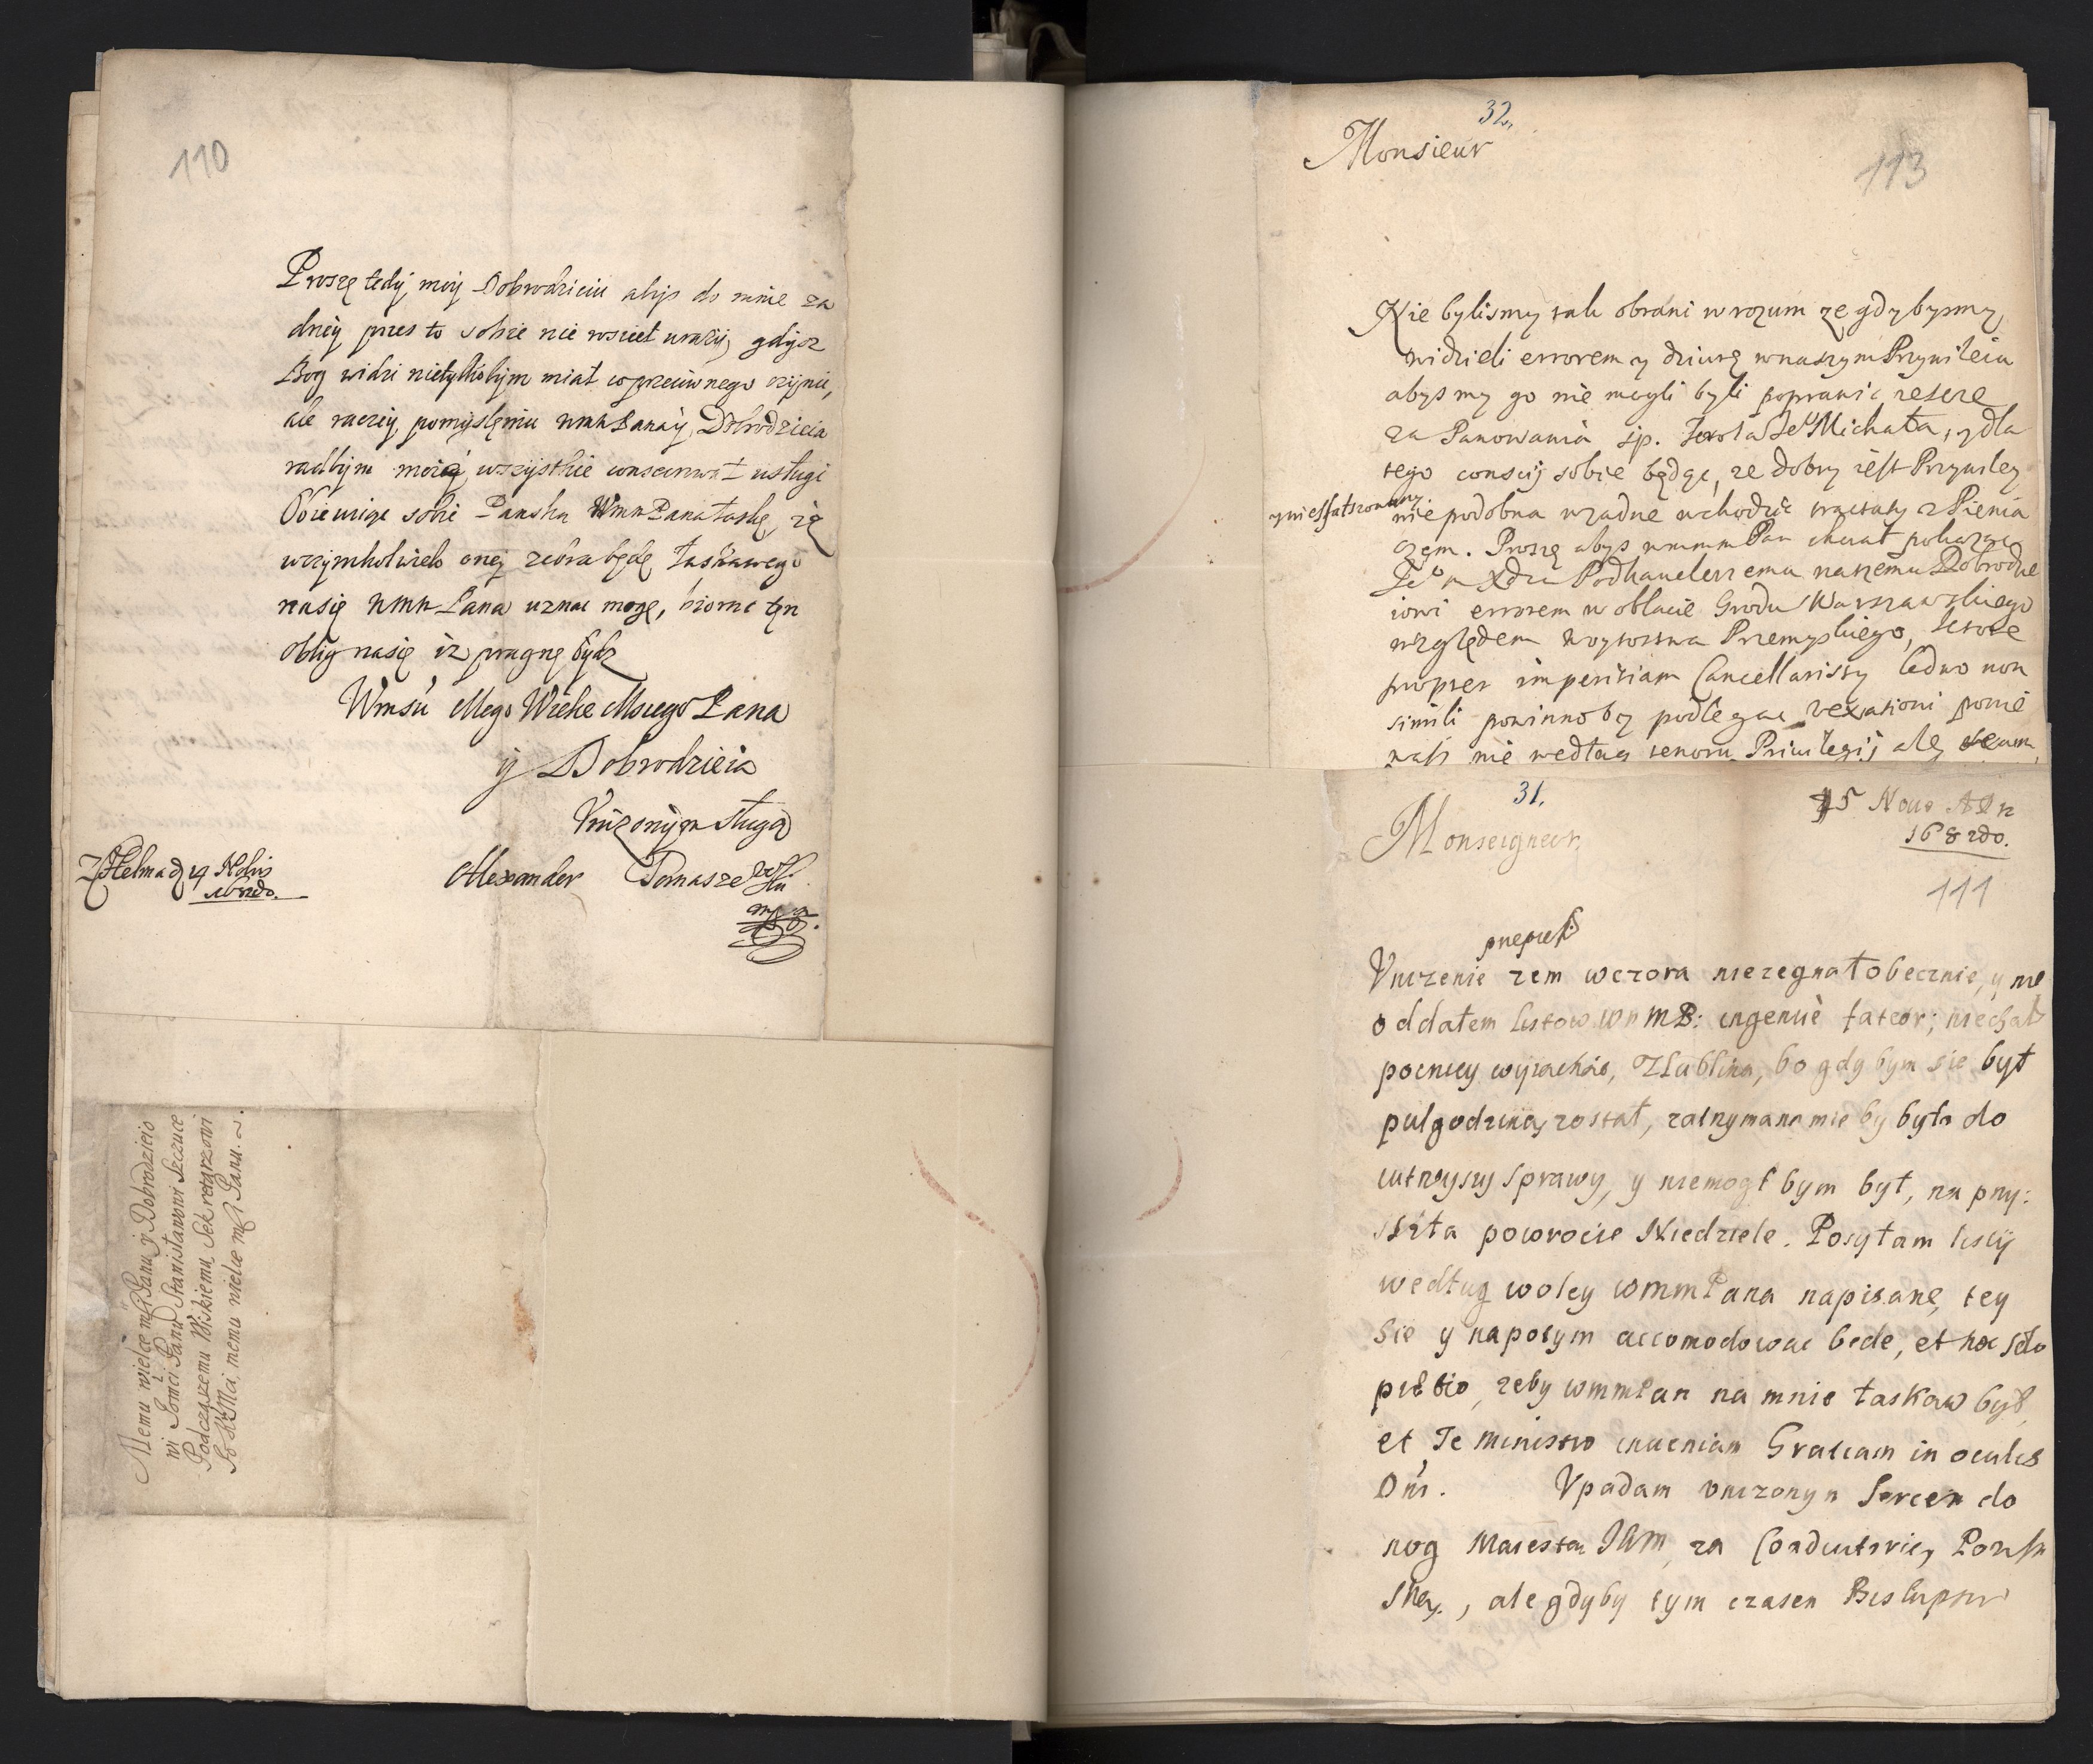 110
Proszę tedy moy Dobrodzieiu abys do mnie za
dney przes to sobie nie wsciet urazy, gdysz
Bog widzi nietylkobym miał co przeciwnego czynic,
ale raczey pomyslęniu WmmPana y Dobrodzieia
radbym moię wszystkie usługi
Obiecuige sobie Panską WmmPana łaskę, że
wczymkolwiek oney będę łaskawego
nasię Wmm Pana uznac mogę, biorąc tęn
oblig nasię iż pragnę bydz
Wmsci Mego Wielce Mscego Pana
y Dobrodzieia
Vniżonym sługą
Alexander Tomaszewski
mp
Z Chelma d 14 Nobris
1682do.
Memu wielce mśći Panu y Dobrodzieio
wi Jomći Panu Stanisławowi Szczuce
Podczaszemu Wiskiemu, Sekretarzowi
Jo Kr Mci, memu wielce mśći Panu.
32.
Monsieur
113
Nie bylismy tak obrani w rozum ze gdybysmy
widzieli errorem y dziurę wnaszym Przywileiu
abysmy go nie mogli byli poprawic ieszcze
za Panowania śp. Krola Je Michała, y dla
tego conscij sobie będąc, ze dobry iest Przywiley
y niesfałszowany.
niepodobna wzadne wchodzić traktaty z Pienia
czem. Proszę abys wmmm Pan chciał pokazac
Je Xdzu Podkanclerzemu naszemu Dobrodzie
iowi errorem w oblacie Grodu Warszawskiego
względem woytostwa Przemyskiego, ktore
propter imperitiam Cancellaristy ledwo non
simili powinnoby podlegac vexationi ponie
waż nie według tenoru Privilegij ale
31.
15 Nove A
1682do.
Monseigneur
111
Vnizenie przeprasz
zem wczora niezegnał obecznie, y nie
oddałem listow WMMP: ingenuè fateor; niechał
pocniey wyiachac, Zlublina, bo gdybym sie był
pulgodziny został, zatrzymano mie by było do
iutrzyszy sprawy, y niemogł bym był, na przy:
szła powrocic Niedziele. Posyłam listy
według woley wmmPana napisane, tey
sie y napotym accomodowac bede, et hoc
, zeby wmmPan na mnie łaskaw był,
et Te ministro inueniam Gratiam in oculis
Dni. Vpadam vnizonym Sercem do
nog Maiestatu JKM, za Coadiutorię Ponsk
, ale gdyby tym czasem Biskupstw